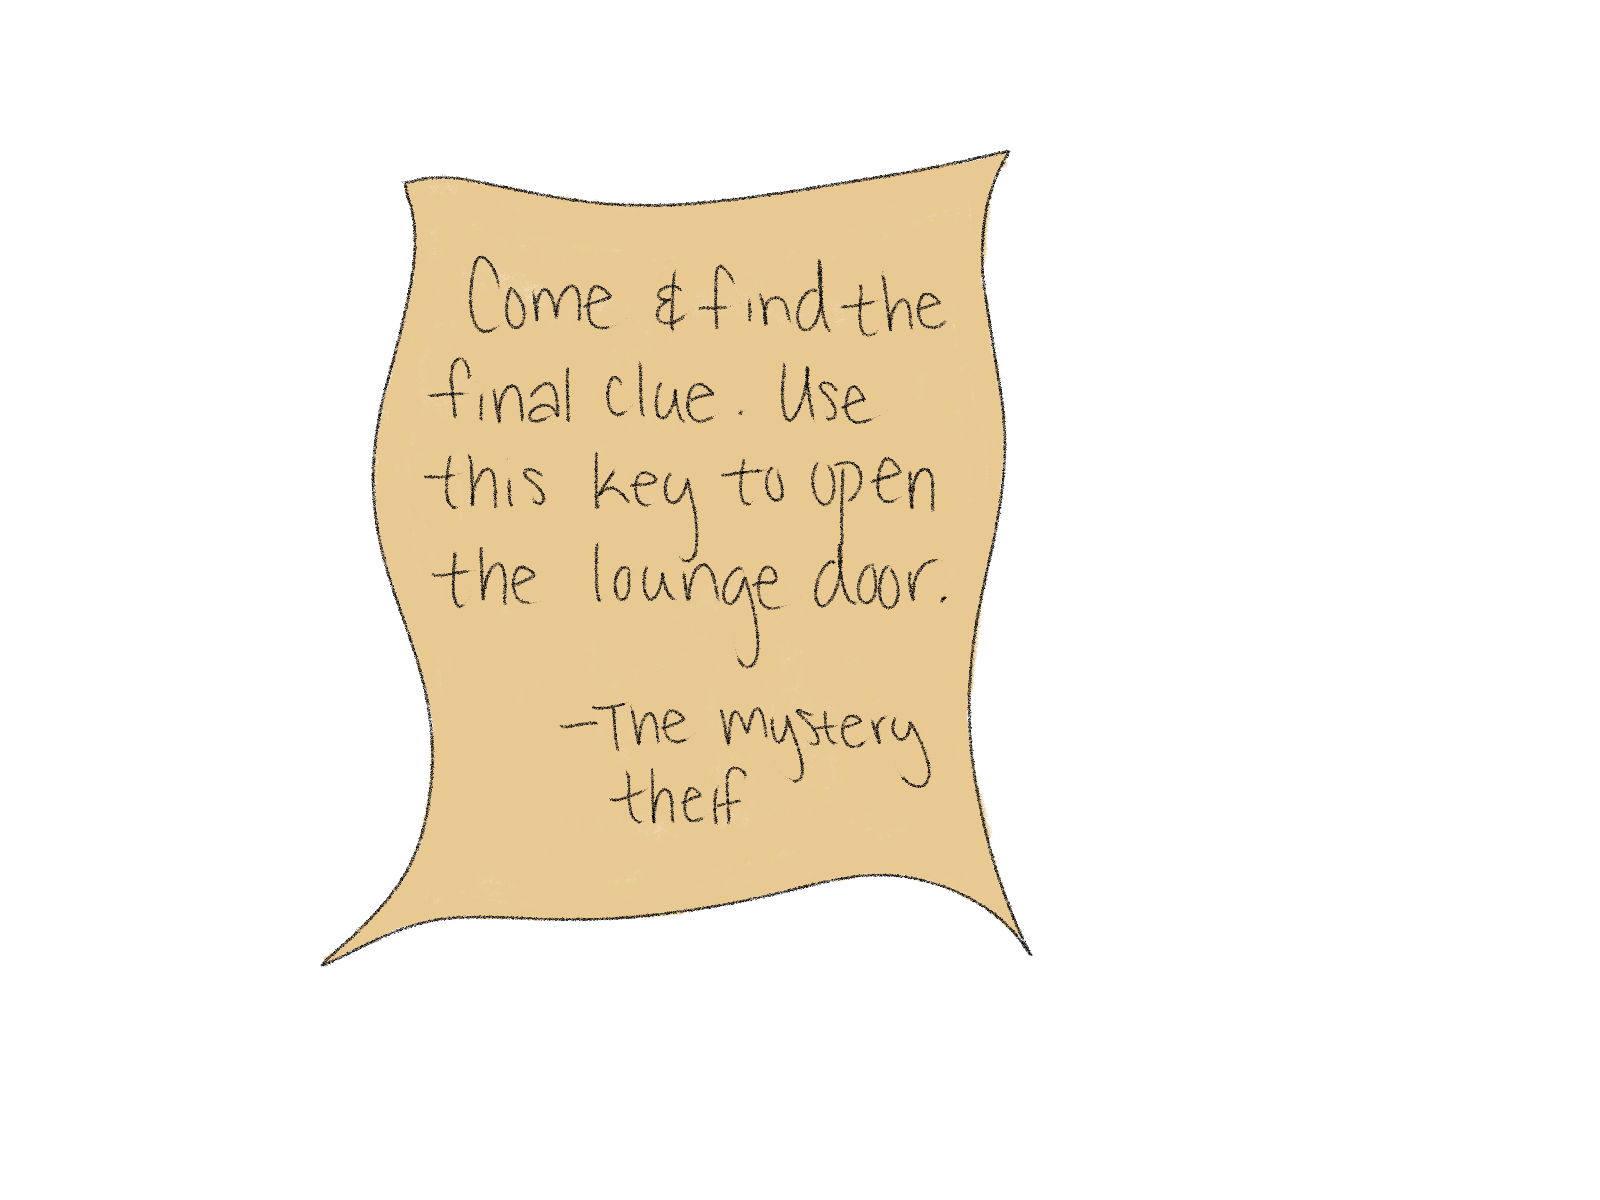 Come & find the
final clue. Use
this key to open
the lounge door.
-The mystery
theif